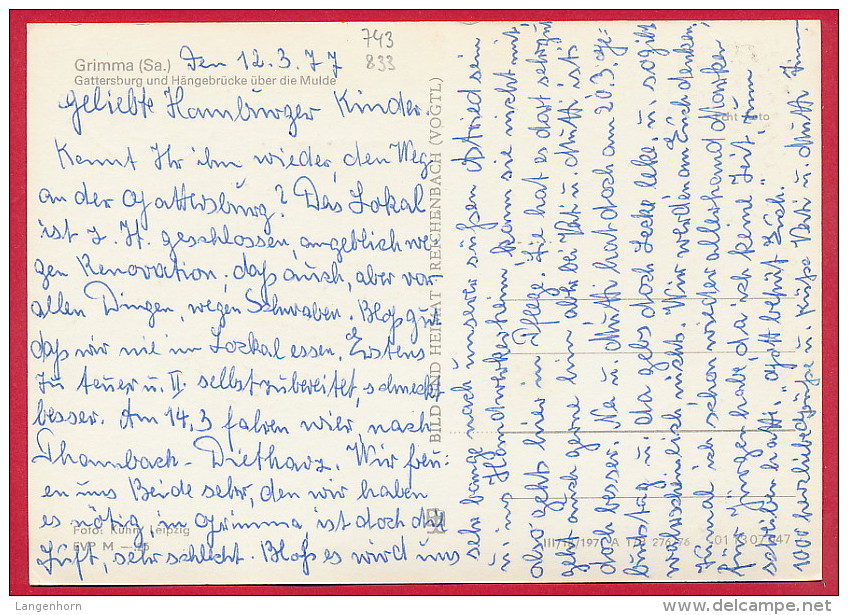 743
833
Grimma (Sa.) Den 12.3.77
Gattersburg und Hängebrücke über die Mulde
Geliebte Hamburger Kinder.
Kennt Ihr ihn wieder, den Weg
an der Gattersburg? Das Lokal
ist z. Zt. geschlossen, angeblich we-
gen Renovation, daß auch, aber vor
allen Dingen, wegen Schwaben. Bloß gut
daß wir nie im Lockal essen, Erstens
zu teuer u. II. selbstzubereitet, schmeckt
besser. Am 14.3 fahren wir, nach
Thambach-Dietharz. Wir freu-
en uns Beide sehr, den wir haben
es nötig, in Grimma ist doch die
Luft, sehr schlecht. Bloß es wird uns
Foto: Kuhn, Leipzig
EVP M
BILD UND HEIMAT REICHENBACH (VOGTL)
Echt Foto
sehr bange nach unserer süßen Astried sein
u. ins Handwerkerheim kann sie nicht mit,
also gehts hier in Pflege. Sie hat es dort sehr gut
geht auch gerne hin aber bei Vati u. Mutti ists
doch besser. Na u. Mutti hat doch am 20.3. Ge-
burtstag u. da gebs doch Lecke leke u. sogibts
wahrscheinlich nichts. Wir werden an Euch denken,
zumal ich schon wieder allerhand
für morgen habe, da ich keine Zeit, zum
schreiben hatte. „Gott behüt Euch."
1000 herzliebe Grüße u. Küße Vati u. Mutti
Langenhorn
delcampe.net